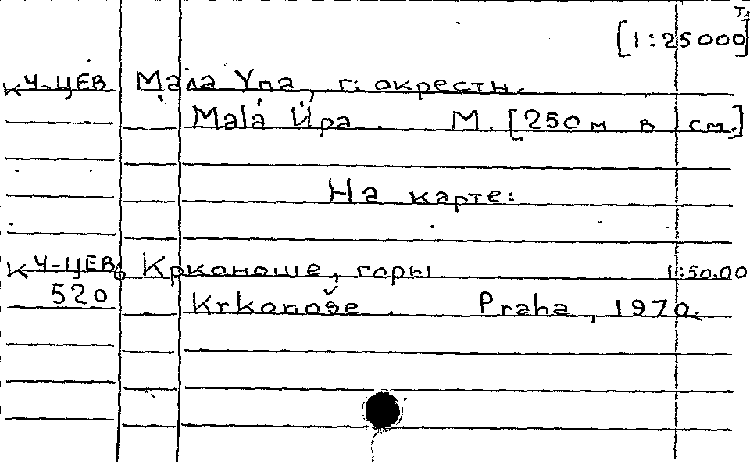 [1:25000]
кЧ-ЦЕВ Мала Упа, г. окрестн.
Malá Úpa. М. [250м в см.]
На карте:
кЧ-ЦЕВ Крконоше, горы 1:50.00
520 Krkonoše. Praha, 1970.